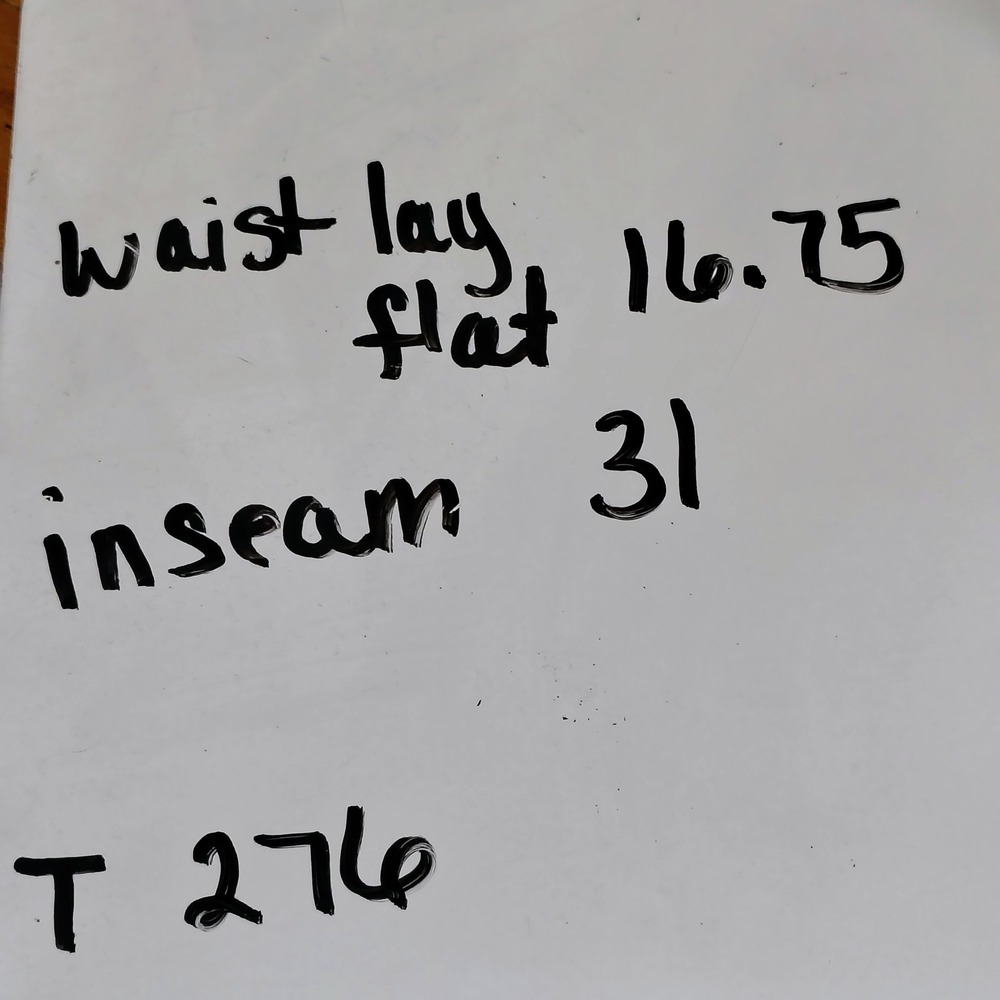 waist lay 16.75
flat
inseam 31
T 276